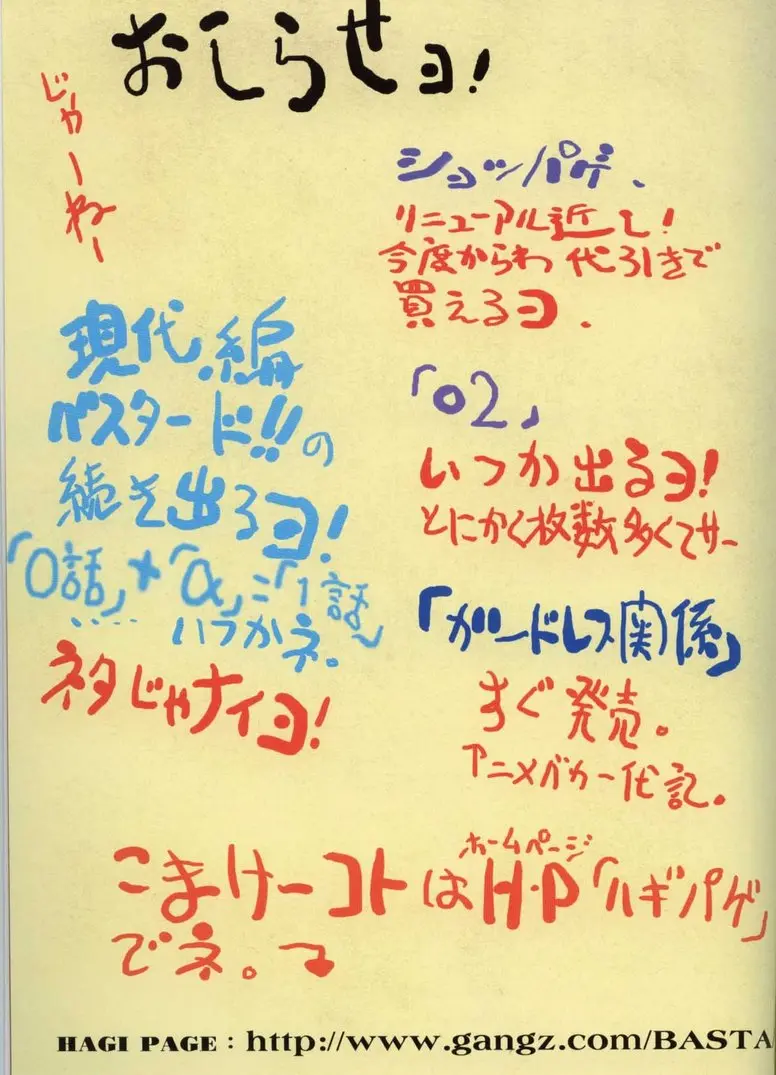 おしらせヨ!
ショッパゲ、
リニューアル近し!
今度からわ 代引きで
買えるヨ、
「02」
いつか出るヨ!
とにかく枚数多くてサー
「ガードレス関係」
すぐ発売。
アニメバカ一代記。
現代編
バスタード!!の
続き出るヨ!
「0話」+「α」=「1話」
‥‥いつかネ。
ネタじゃナイヨ!
こまけーコトは H・P「ハギパゲ」
ホームページ
でネ。
じゃーねー
HAGI PAGE : http://www.gangz.com/BASTA